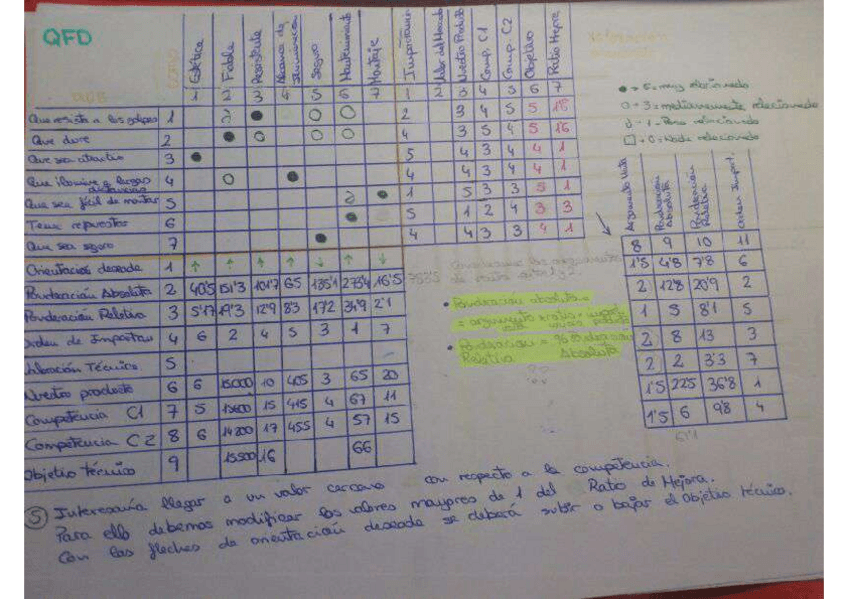 QFD
Estética
Fiable
Resistente
Alcance de iluminación
Seguro
Mantenimiento
Montaje
Importancia
Valor del Mercado
Nuestro Producto
Comp. C1
Comp. C2
Objetivo
Ratio Mejora
1 2 3 4 5 6 7 1 2 3 4 5 6 7
Que resista a los golpes 1 2 3 4 5 5
Que dure 2 4 3 5 4 5
Que sea atractivo 3 5 4 3 4 4 1
Que ilumine a largas distancias 4 4 4 3 4 4 1
Que sea fácil de montar 5 1 5 3 3 5 1
Tener repuestos 6 5 1 2 4 3 3
Que sea seguro 7 4 4 3 3 4 1
Orientación deseada 1 ↑ ↑ ↑ ↑ ↓ ↑ ↓
Ponderación Absoluta 2 65 16'5
Ponderación Relativa 3 5'17 19'3 12'9 8'3 17'2 34'9 2'1
Orden de Importan 4 6 2 4 5 3 1 7
Técnico 5
Nuestro producto 6 6 15000 10 405 3 65 20
Competencia C1 7 5 15 415 4 67 11
Competencia C2 8 6 14200 17 455 4 57 15
Objetivo técnico 9 15500 16 66
= muy relacionado
= 3 = medianamente relacionado
= 1 = Poco relacionado
= 0 = Nada relacionado
• Ponderación absoluta =
= argumento x ratio x
• Ponderación = % Ponderación
Relativa Absoluta
Argumento Venta
Ponderación Absoluta
Ponderación Relativa
Orden Import.
8 9 10 11
1'5 4'8 7'8 6
2 12'8 20'9 2
1 5 8'1 5
2 8 13 3
2 2 3'3 7
1'5 22'5 36'8 1
1'5 6 9'8 4
61'1
5 Interesaría llegar a un valor cercano con respecto a la competencia.
Para ello debemos modificar los valores mayores de 1 del Ratio de Mejora.
Con las flechas de orientación deseada se deberá subir o bajar el Objetivo técnico.